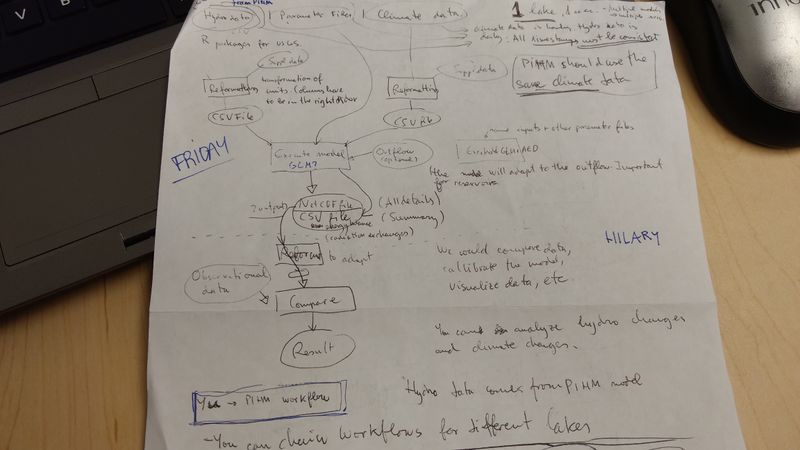 from PIHM
Hydro data | Parameter Files | Climate data
1 lake, 1 year
climate data is hourly. Hydro data is
daily. All timestamps must be consistent
R packages for USGS
Suppl data
Reformatting
transformation of
units. Columns have
to be in the right order
CSV File
Suppl data
Reformatting
CSV File
PIHM should use the
same climate data
FRIDAY
Execute model
GLM?
Outflow
(optional)
inputs + other parameter files
will adapt to the outflow. Important
for reservoirs
2 outputs
NetCDF file (All details)
CSV file (Summary)
(radiation exchanges)
Reformat to adapt
Observational
data
Compare
Result
We could compare data,
callibrate the model,
visualize data, etc
HILARY
You can analyze hydro changes
and climate changes.
→ PIHM workflow
Hydro data comes from PIHM model
- You can chain workflows for different lakes